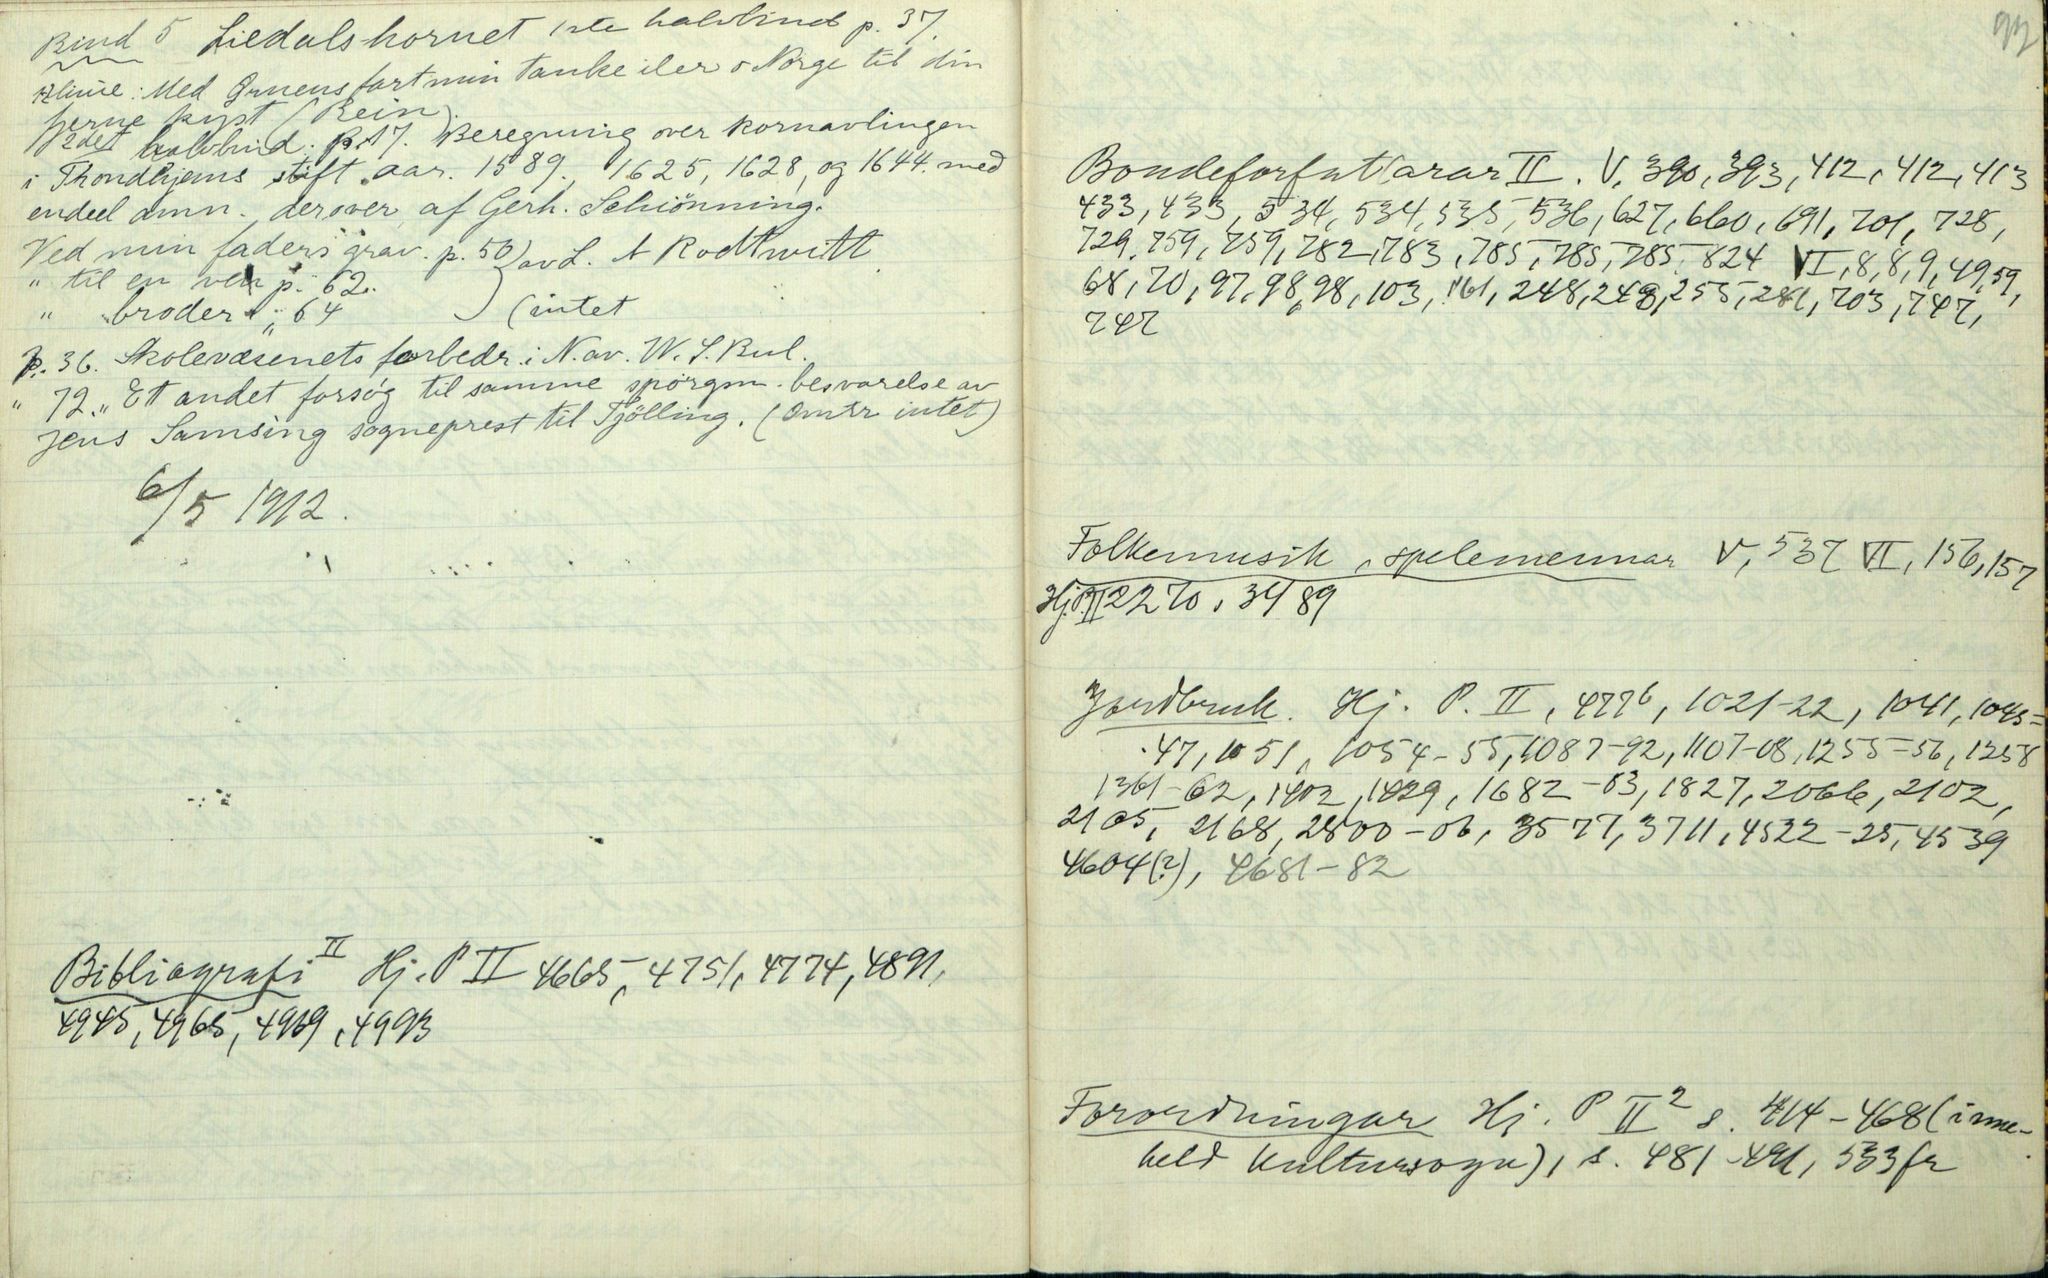 Bind 5 Liedalshornet 1ste halvbind p. 37.
Med Ørnens fart min tanke iler o Norge til din
fjerne kyst (Rein).
2det halvbind. p. 17. Beregning over kornavlingen
i Throndhjems stift aar. 1589, 1625, 1628, og 1644. med
endeel anm. derover af Gerh. Schiönning.
Ved min faders grav. p. 50) av L. A Rodtwitt
" til en ven p. 62.
" broder " 64 (intet
p. 36. Skolevæsenets forbedr. i N. av. W. S. Bul.
" 72. " Et andet forsøg til samme spörgsm. besvarelse av
Jens Samsing sogneprest til Tjölling. (Omtr intet)
6/5 1912.
Bibliografi II Hj. P II 4665, 4751, 4774, 4891,
4945, 4965, 4969, 4993
Bondeforfattarar II. V, 390, 393, 412, 412, 413
433, 433, 534, 534, 535, 536, 627, 660, 691, 701, 728,
729, 759, 759, 782, 783, 785, 785, 785, 824 VI, 8, 8, 9, 49, 59,
68, 70, 97, 98, 98, 103, 161, 248, 248, 255, 281, 703, 747,
747
Folkemusik, spelemennar V, 537 VII, 156, 157
Hj. P. II 2270, 3489
Jordbruk. Hj. P. II, 4776, 1021-22, 1041, 1045=
47, 1051, 1054-55, 1087-92, 1107-08, 1255-56, 1258
1361-62, 1402, 1429, 1682-83, 1827, 2066, 2102,
2105, 2168, 2800-06, 3577, 3711, 4522-25, 4539
4604(?), 4681-82
Forordningar Hj. P II 2 s. 414-468 (inne-
held kultursoga), s. 481-491, 533 fr